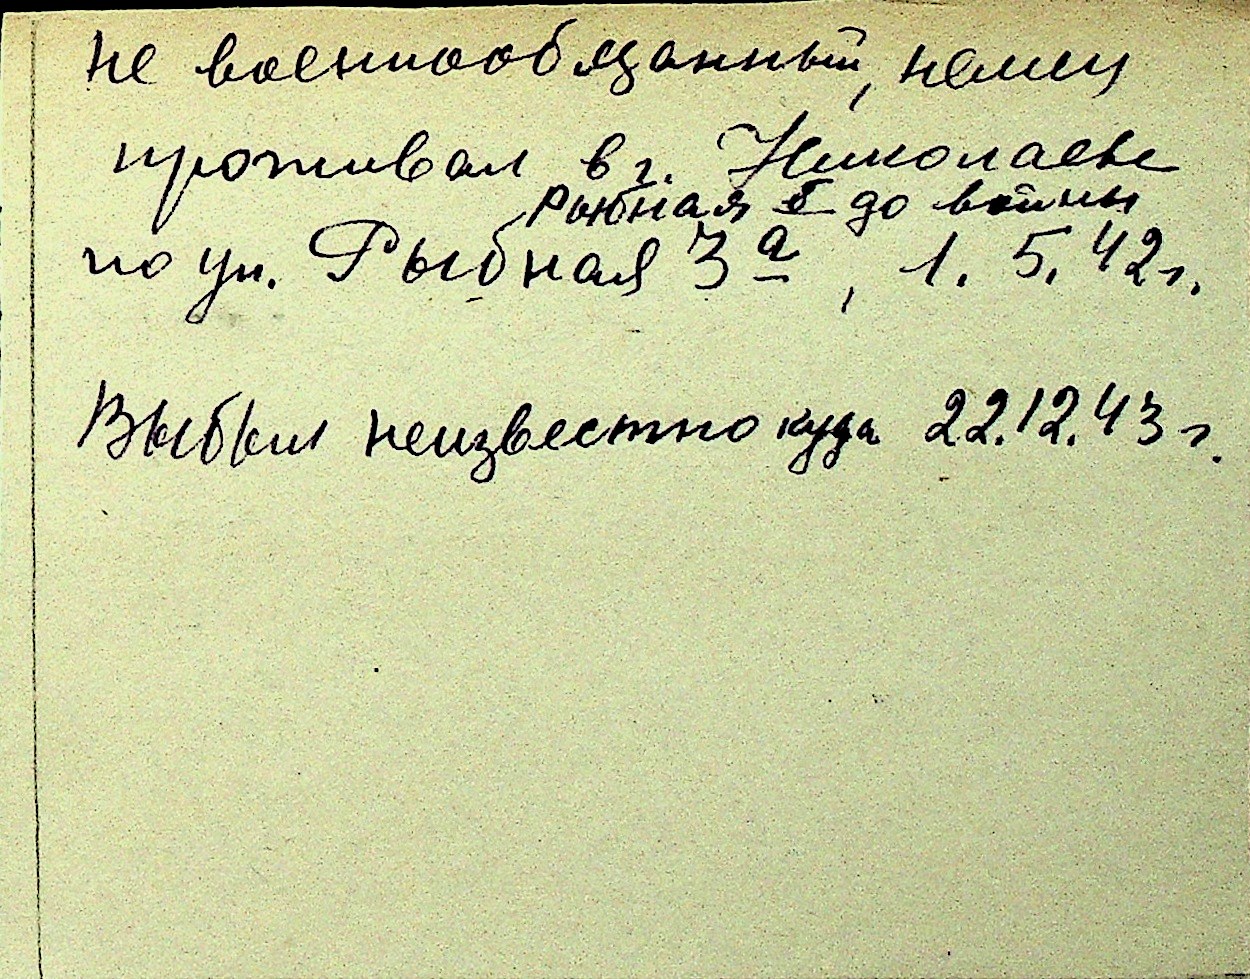 не военнообязанный, немец
проживал в г. Николаеве
Рыбная 5 до войны
по ул. Рыбная 3а, 1.5.42 г.
Выбыл неизвестно куда 22.12.43 г.